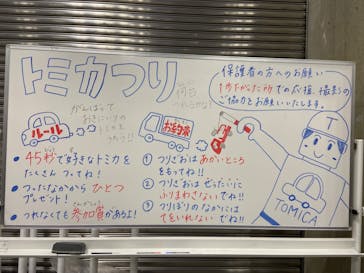 トミカつり
何台
つれるかな?
がんばって
おきにいりの
トミカを
つろう!!
ルール
45秒で好きなトミカを
たくさん つってね!
つったなかから ひとつ
プレゼント!
つれなくても参加賞があるよ!
お約束
① つりざおは あかいところ
をもってね!!
② つりざおは ぜったいに
ふりまわさないでね!!
③ つりぼりのなかには
てをいれないでね!!
保護者の方へのお願い
1歩下がった所での応援、撮影の
ご協力をお願いいたします。
T
TOMICA